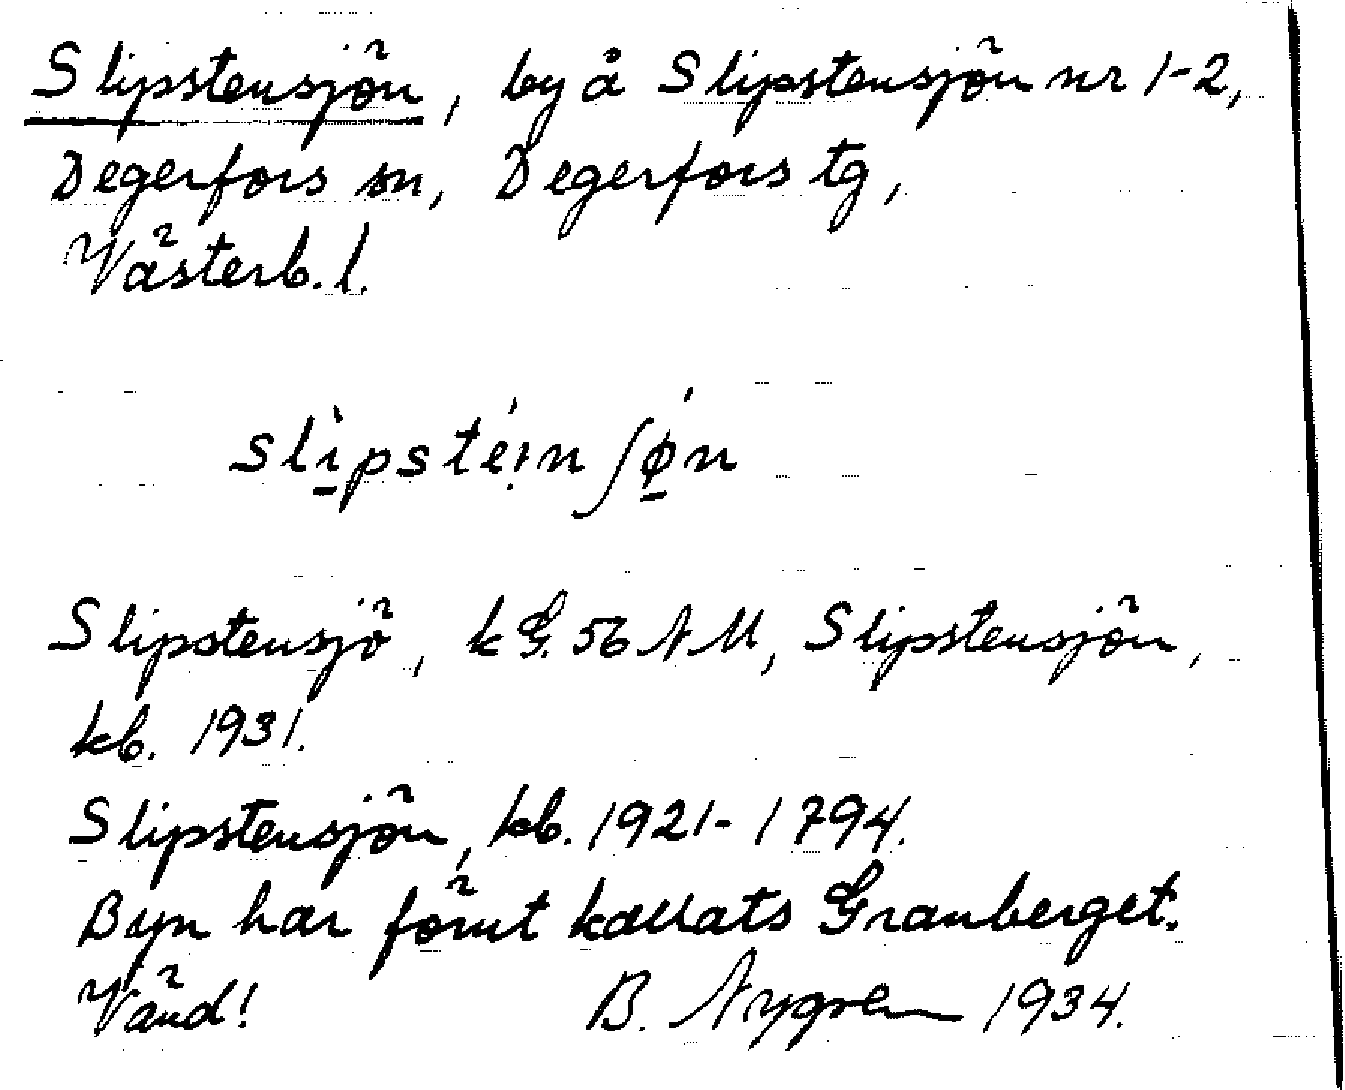 Slipstensjön, by å Slipstensjön nr 1-2,
Degerfors sn, Degerfors tg,
Västerb. l.
slì̠pstéịn ʃǿ̠n
Slipstensjö, k G. 56 NM, Slipstensjön,
kb. 1931.
Slipstensjön, kb. 1921-1794.
Byn har förut kallats Granberget.
Vänd! B. Nygren 1934.